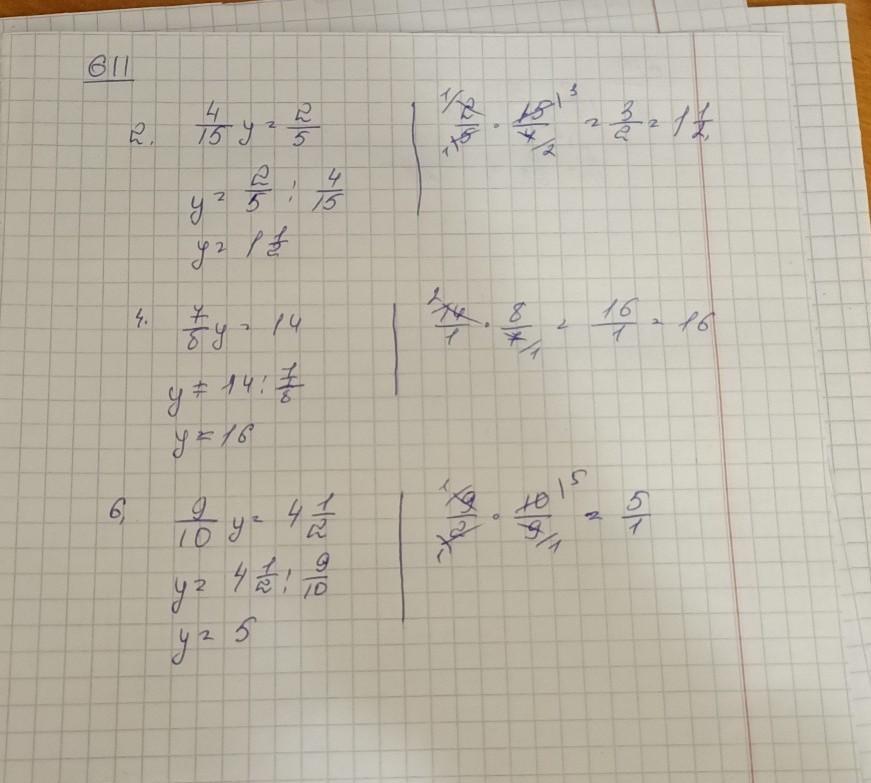 611
2. 4/15 y = 2/5
y = 2/5 : 4/15
y = 1 1/2
2/5 · 15/4 = 3/2 = 1 1/2
4. 7/8 y = 14
y = 14 : 7/8
y = 16
14/1 · 8/7 = 16/1 = 16
6. 9/10 y = 4 1/2
y = 4 1/2 : 9/10
y = 5
9/2 · 10/9 = 5/1